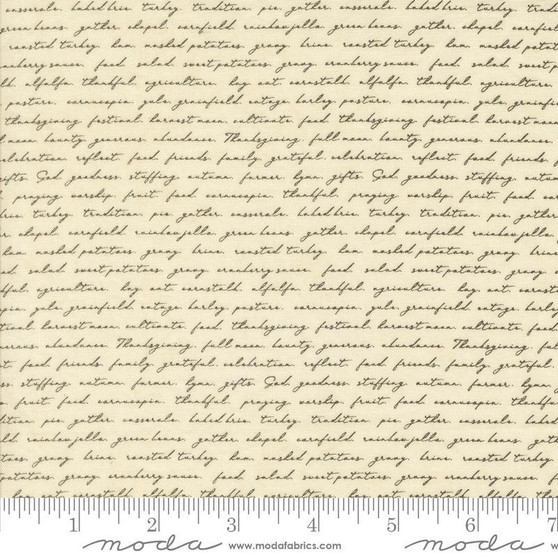 casserole. baked brie. turkey. tradition. pie. gather. casserole. baked brie. turkey.
green beans. gather. chapel. cornfield. rainbow jello. green beans. gather. chapel.
roasted turkey. ham. mashed potatoes. gravy. brine. roasted turkey. ham. mashed
cranberry sauce. food. salad. sweet potatoes. gravy. cranberry sauce. food. salad. sweet
alfalfa. thankful. agriculture. hay. oat. cornstalk. alfalfa. thankful. agriculture.
pasture. cornucopia. yule. grainfield. cottage. barley. pasture. cornucopia. yule.
thanksgiving. festival. harvest moon. cultivate. food. thanksgiving. festival. harvest moon.
bounty. generous. abundance. Thanksgiving. full moon. bounty. generous. abundance.
celebration. reflect. food. friends. family. grateful. celebration. reflect. food. friends.
gifts. God. goodness. stuffing. autumn. farmer. hymn. gifts. God. goodness. stuffing.
praying. worship. fruit. food. cornucopia. thankful. praying. worship. fruit. food.
brie. turkey. tradition. pie. gather. casserole. baked brie. turkey. tradition. pie. gather.
chapel. cornfield. rainbow jello. green beans. gather. chapel. cornfield. rainbow jello.
ham. mashed potatoes. gravy. brine. roasted turkey. ham. mashed potatoes. gravy.
salad. sweet potatoes. gravy. cranberry sauce. food. salad. sweet potatoes. gravy.
agriculture. hay. oat. cornstalk. alfalfa. thankful. agriculture. hay. oat.
yule. grainfield. cottage. barley. pasture. cornucopia. yule. grainfield. cottage.
harvest moon. cultivate. food. thanksgiving. festival. harvest moon. cultivate.
abundance. Thanksgiving. full moon. bounty. generous. abundance. Thanksgiving.
food. friends. family. grateful. celebration. reflect. food. friends. family. grateful.
stuffing. autumn. farmer. hymn. gifts. God. goodness. stuffing. autumn. farmer.
fruit. food. cornucopia. thankful. praying. worship. fruit. food. cornucopia.
pie. gather. casserole. baked brie. turkey. tradition. pie. gather. casserole. baked brie.
rainbow jello. green beans. gather. chapel. cornfield. rainbow jello. green beans.
gravy. brine. roasted turkey. ham. mashed potatoes. gravy. brine. roasted turkey.
gravy. cranberry sauce. food. salad. sweet potatoes. gravy. cranberry sauce. food.
hay. oat. cornstalk. alfalfa. thankful. agriculture. hay. oat. cornstalk. alfalfa.
1 2 3 4 5 6 7
moda www.modafabrics.com moda